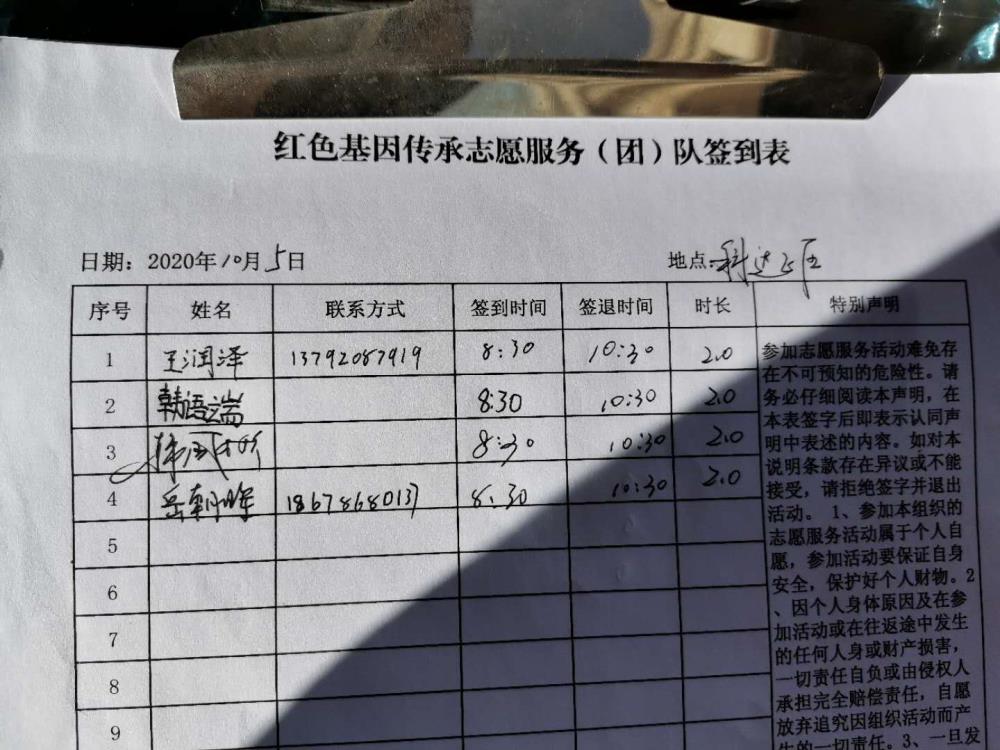 红色基因传承志愿服务（团）队签到表
日期：2020年10月5日 地点：科达
序号 姓名 联系方式 签到时间 签退时间 时长 特别声明
1 王润泽 13792087919 8:30 10:30 2.0
2 韩语端 8:30 10:30 2.0
3 8:30 10:30 2.0
4 岳朝晖 18678680137 8:30 10:30 2.0
5
6
7
8
9
参加志愿服务活动难免存
在不可预知的危险性。请
务必仔细阅读本声明，在
本表签字后即表示认同声
明中表述的内容。如对本
说明条款存在异议或不能
接受，请拒绝签字并退出
活动。 1、参加本组织的
志愿服务活动属于个人自
愿，参加活动要保证自身
安全，保护好个人财物。2
、因个人身体原因及在参
加活动或在往返途中发生
的任何人身或财产损害，
一切责任自负或由侵权人
承担完全赔偿责任，自愿
放弃追究因组织活动而产
生的一切责任。3、一旦发